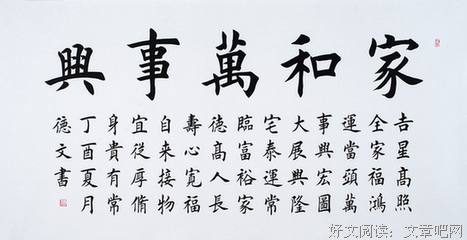 家和萬事興
吉星高照
全家福鴻
運當頭萬
事興宏圖
大展興隆
宅泰運常
臨富裕家
德高人長
壽心寬福
自來接物
宜從厚脩
身貴有常
丁酉夏月
德文書
好文阅读：文章吧网